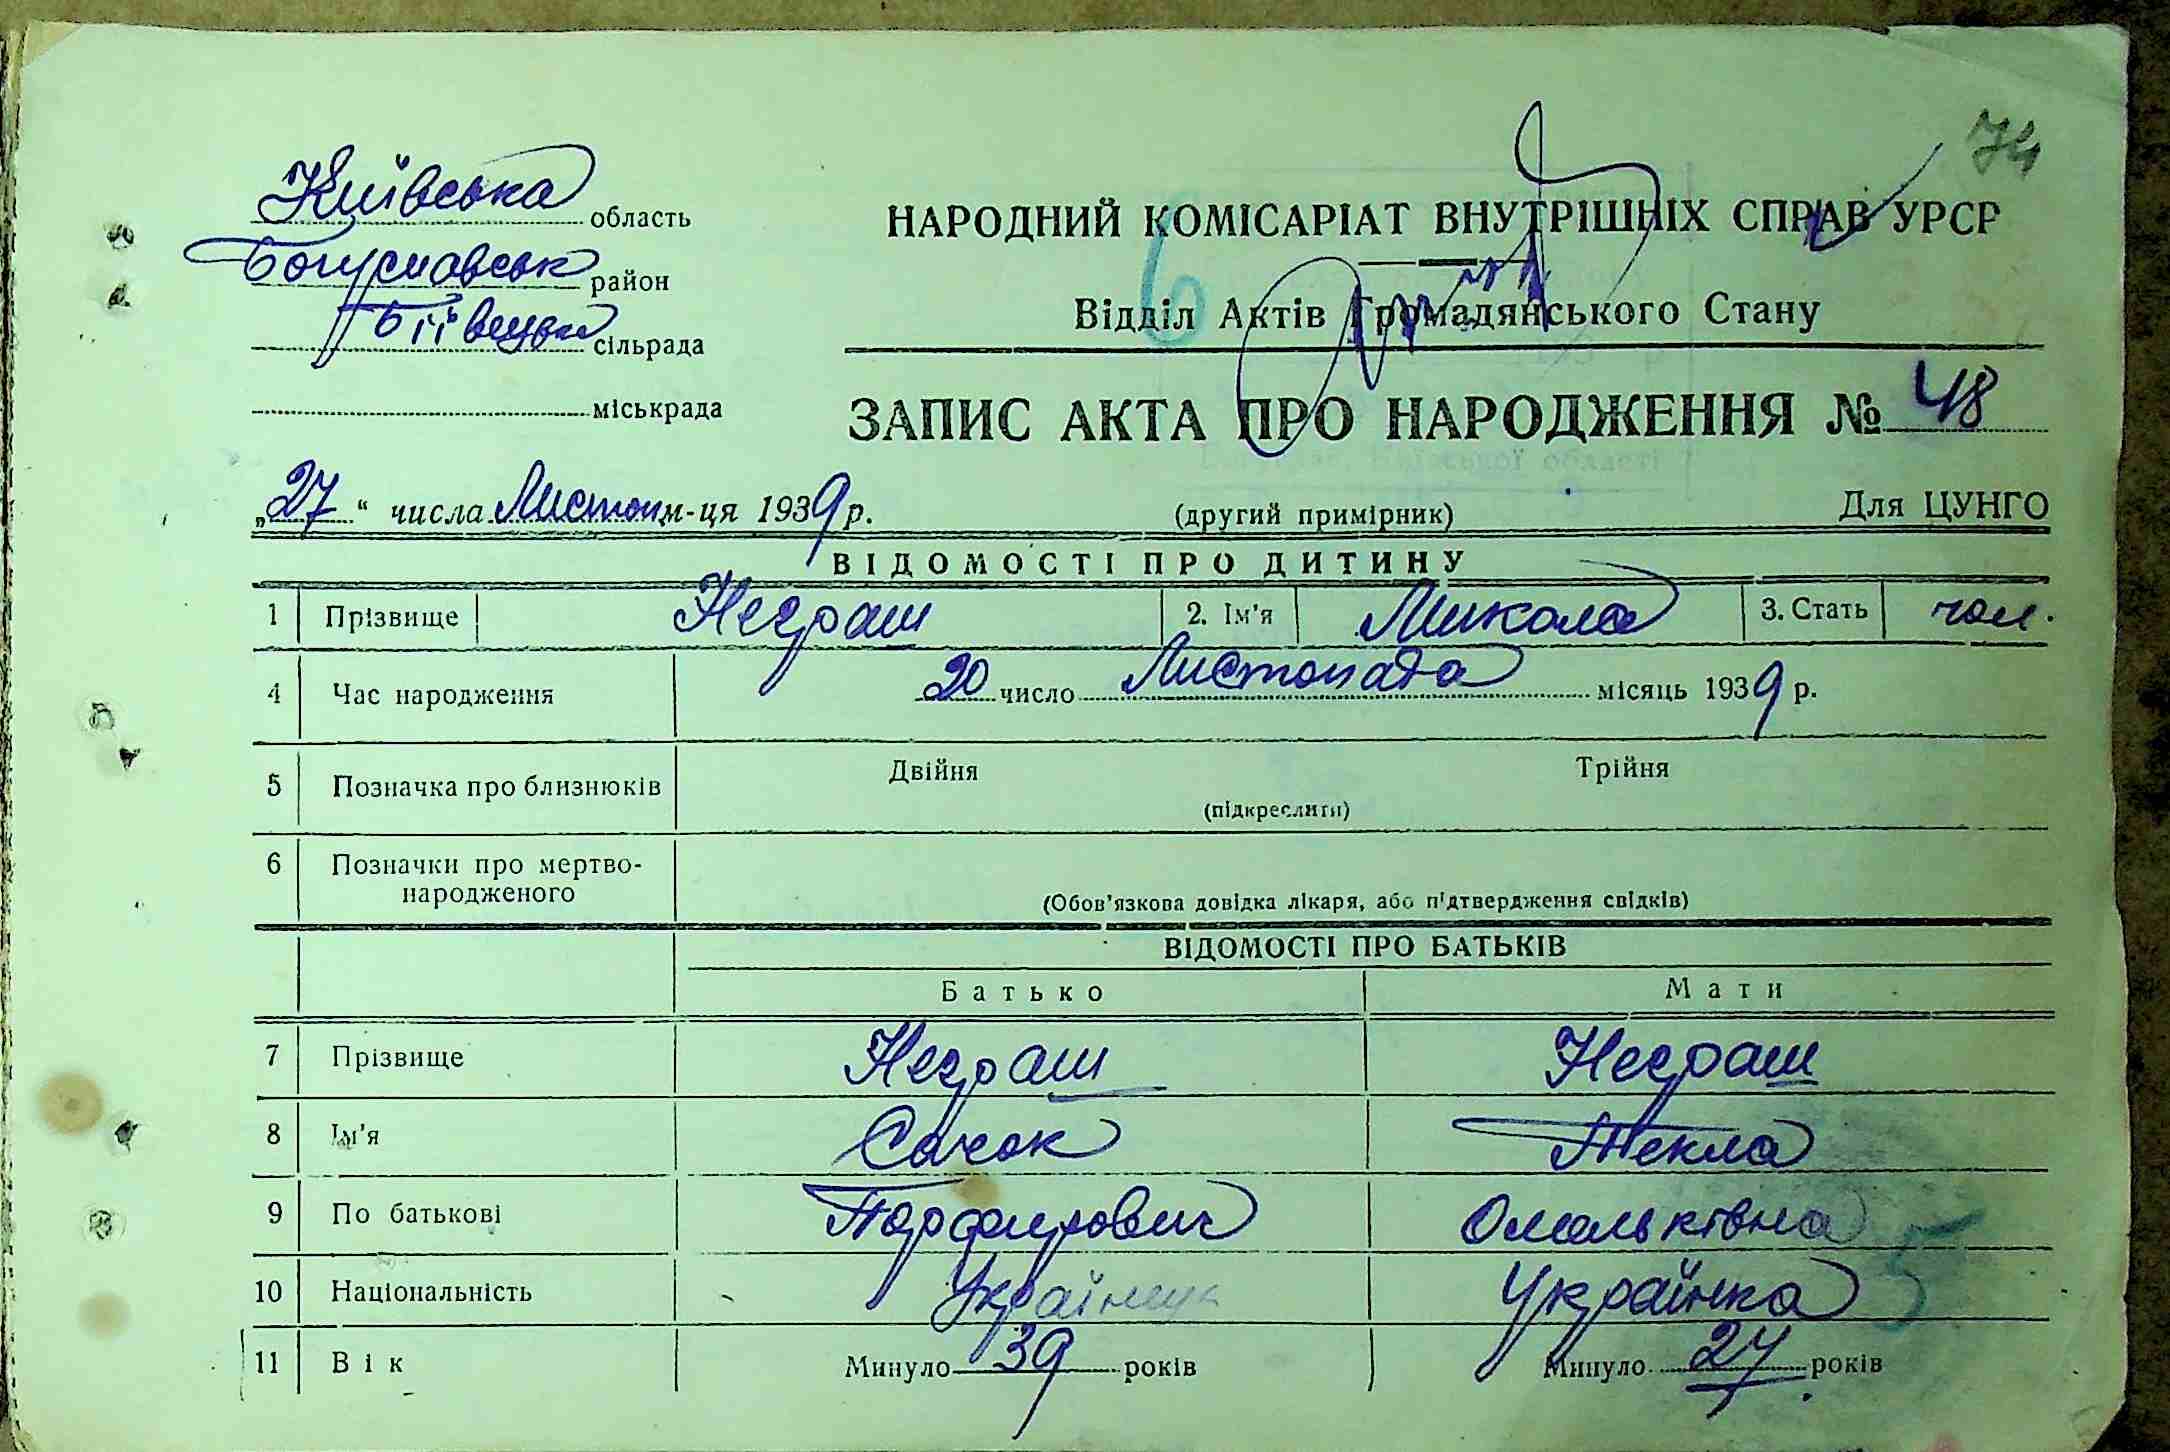 74
Київська область
НАРОДНИЙ КОМІСАРІАТ ВНУТРІШНІХ СПРАВ УРСР
Богуславськ район
6
Відділ Актів Громадянського Стану
Біївецька сільрада
міськрада
ЗАПИС АКТА ПРО НАРОДЖЕННЯ № 48
„27“ числа Листоп м-ця 1939 р. (другий примірник) Для ЦУНГО
ВІДОМОСТІ ПРО ДИТИНУ
1 Прізвище Неграш 2. Ім'я Микола 3. Стать чол.
4 Час народження 20 число Листопада місяць 1939 р.
5 Позначка про близнюків Двійня Трійня
(підкреслити)
6 Позначки про мертво-
народженого
(Обов'язкова довідка лікаря, або підтвердження свідків)
ВІДОМОСТІ ПРО БАТЬКІВ
Батько Мати
7 Прізвище Неграш Неграш
8 Ім'я Текла
9 По батькові Порфирович
10 Національність Українець Українка
11 Вік Минуло 39 років Минуло 27 років